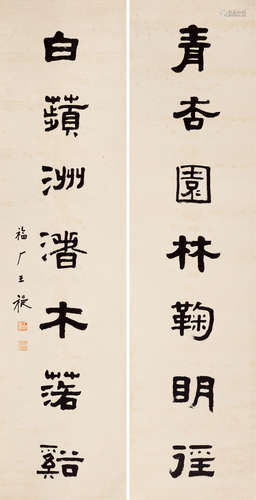 青杏園林鞠明徑
白蘋洲渚木落谿
福厂王禔